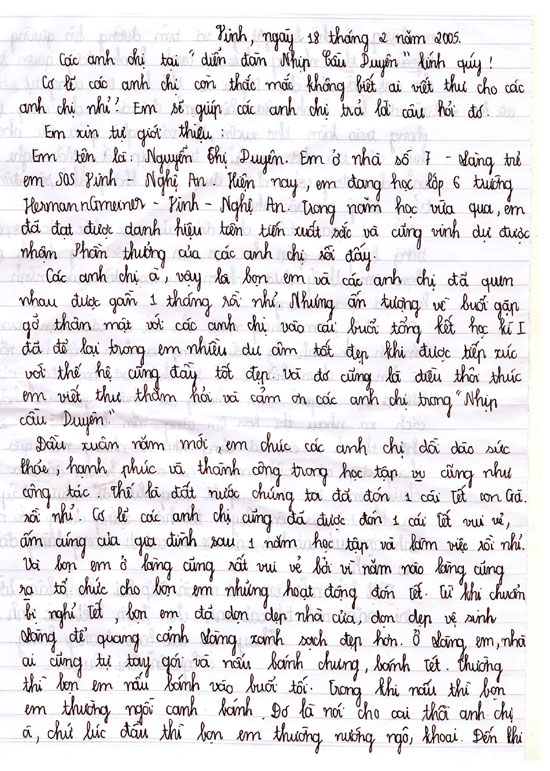 Vinh, ngày 18 tháng 2 năm 2005.
Các anh chị tại "diễn đàn Nhịp Cầu Duyên" kính quý!
Có lẽ các anh chị còn thắc mắc không biết ai viết thư cho các
anh chị nhỉ! Em sẽ giúp các anh chị trả lời câu hỏi đó.
Em xin tự giới thiệu:
Em tên là: Nguyễn Thị Duyên. Em ở nhà số 7 - Làng trẻ
em SOS Vinh - Nghệ An. Hiện nay, em đang học lớp 6 trường
Hermann Gmeiner - Vinh - Nghệ An. Trong năm học vừa qua, em
đã đạt được danh hiệu tiên tiến xuất sắc và cũng vinh dự được
nhận Phần thưởng của các anh chị rồi đấy.
Các anh chị ạ, vậy là bọn em và các anh chị đã quen
nhau được gần 1 tháng rồi nhỉ. Nhưng ấn tượng về buổi gặp
gỡ thân mật với các anh chị vào cái buổi tổng kết học kì I
đã để lại trong em nhiều dư âm tốt đẹp khi được tiếp xúc
với thế hệ cũng đầy tốt đẹp. Và đó cũng là điều thôi thúc
em viết thư thăm hỏi và cảm ơn các anh chị trong "Nhịp
cầu Duyên."
Đầu xuân năm mới, em chúc các anh chị dồi dào sức
khỏe, hạnh phúc và thành công trong học tập vu cũng như
công tác. Thế là đất nước chúng ta đã đón 1 cái Tết con Gà
rồi nhỉ. Có lẽ các anh chị cũng đã được đón 1 cái Tết vui vẻ,
ấm cúng của gia đình sau 1 năm học tập và làm việc rồi nhỉ.
Và bọn em ở làng cũng rất vui vẻ bởi vì năm nào làng cũng
ra tổ chức cho bọn em những hoạt động đón Tết. Từ khi chuẩn
bị nghỉ Tết, bọn em đã dọn dẹp nhà cửa, dọn dẹp vệ sinh
Làng để quang cảnh Làng xanh sạch đẹp hơn. Ở Làng em, nhà
ai cũng tự tay gói và nấu bánh chưng, bánh tét. Thường
thì bọn em nấu bánh vào buổi tối. Trong khi nấu thì bọn
em thường ngồi canh bánh. Đó là nói cho oai thôi anh chị
ạ, chứ lúc đầu thì bọn em thường nướng ngô, khoai. Đến khi